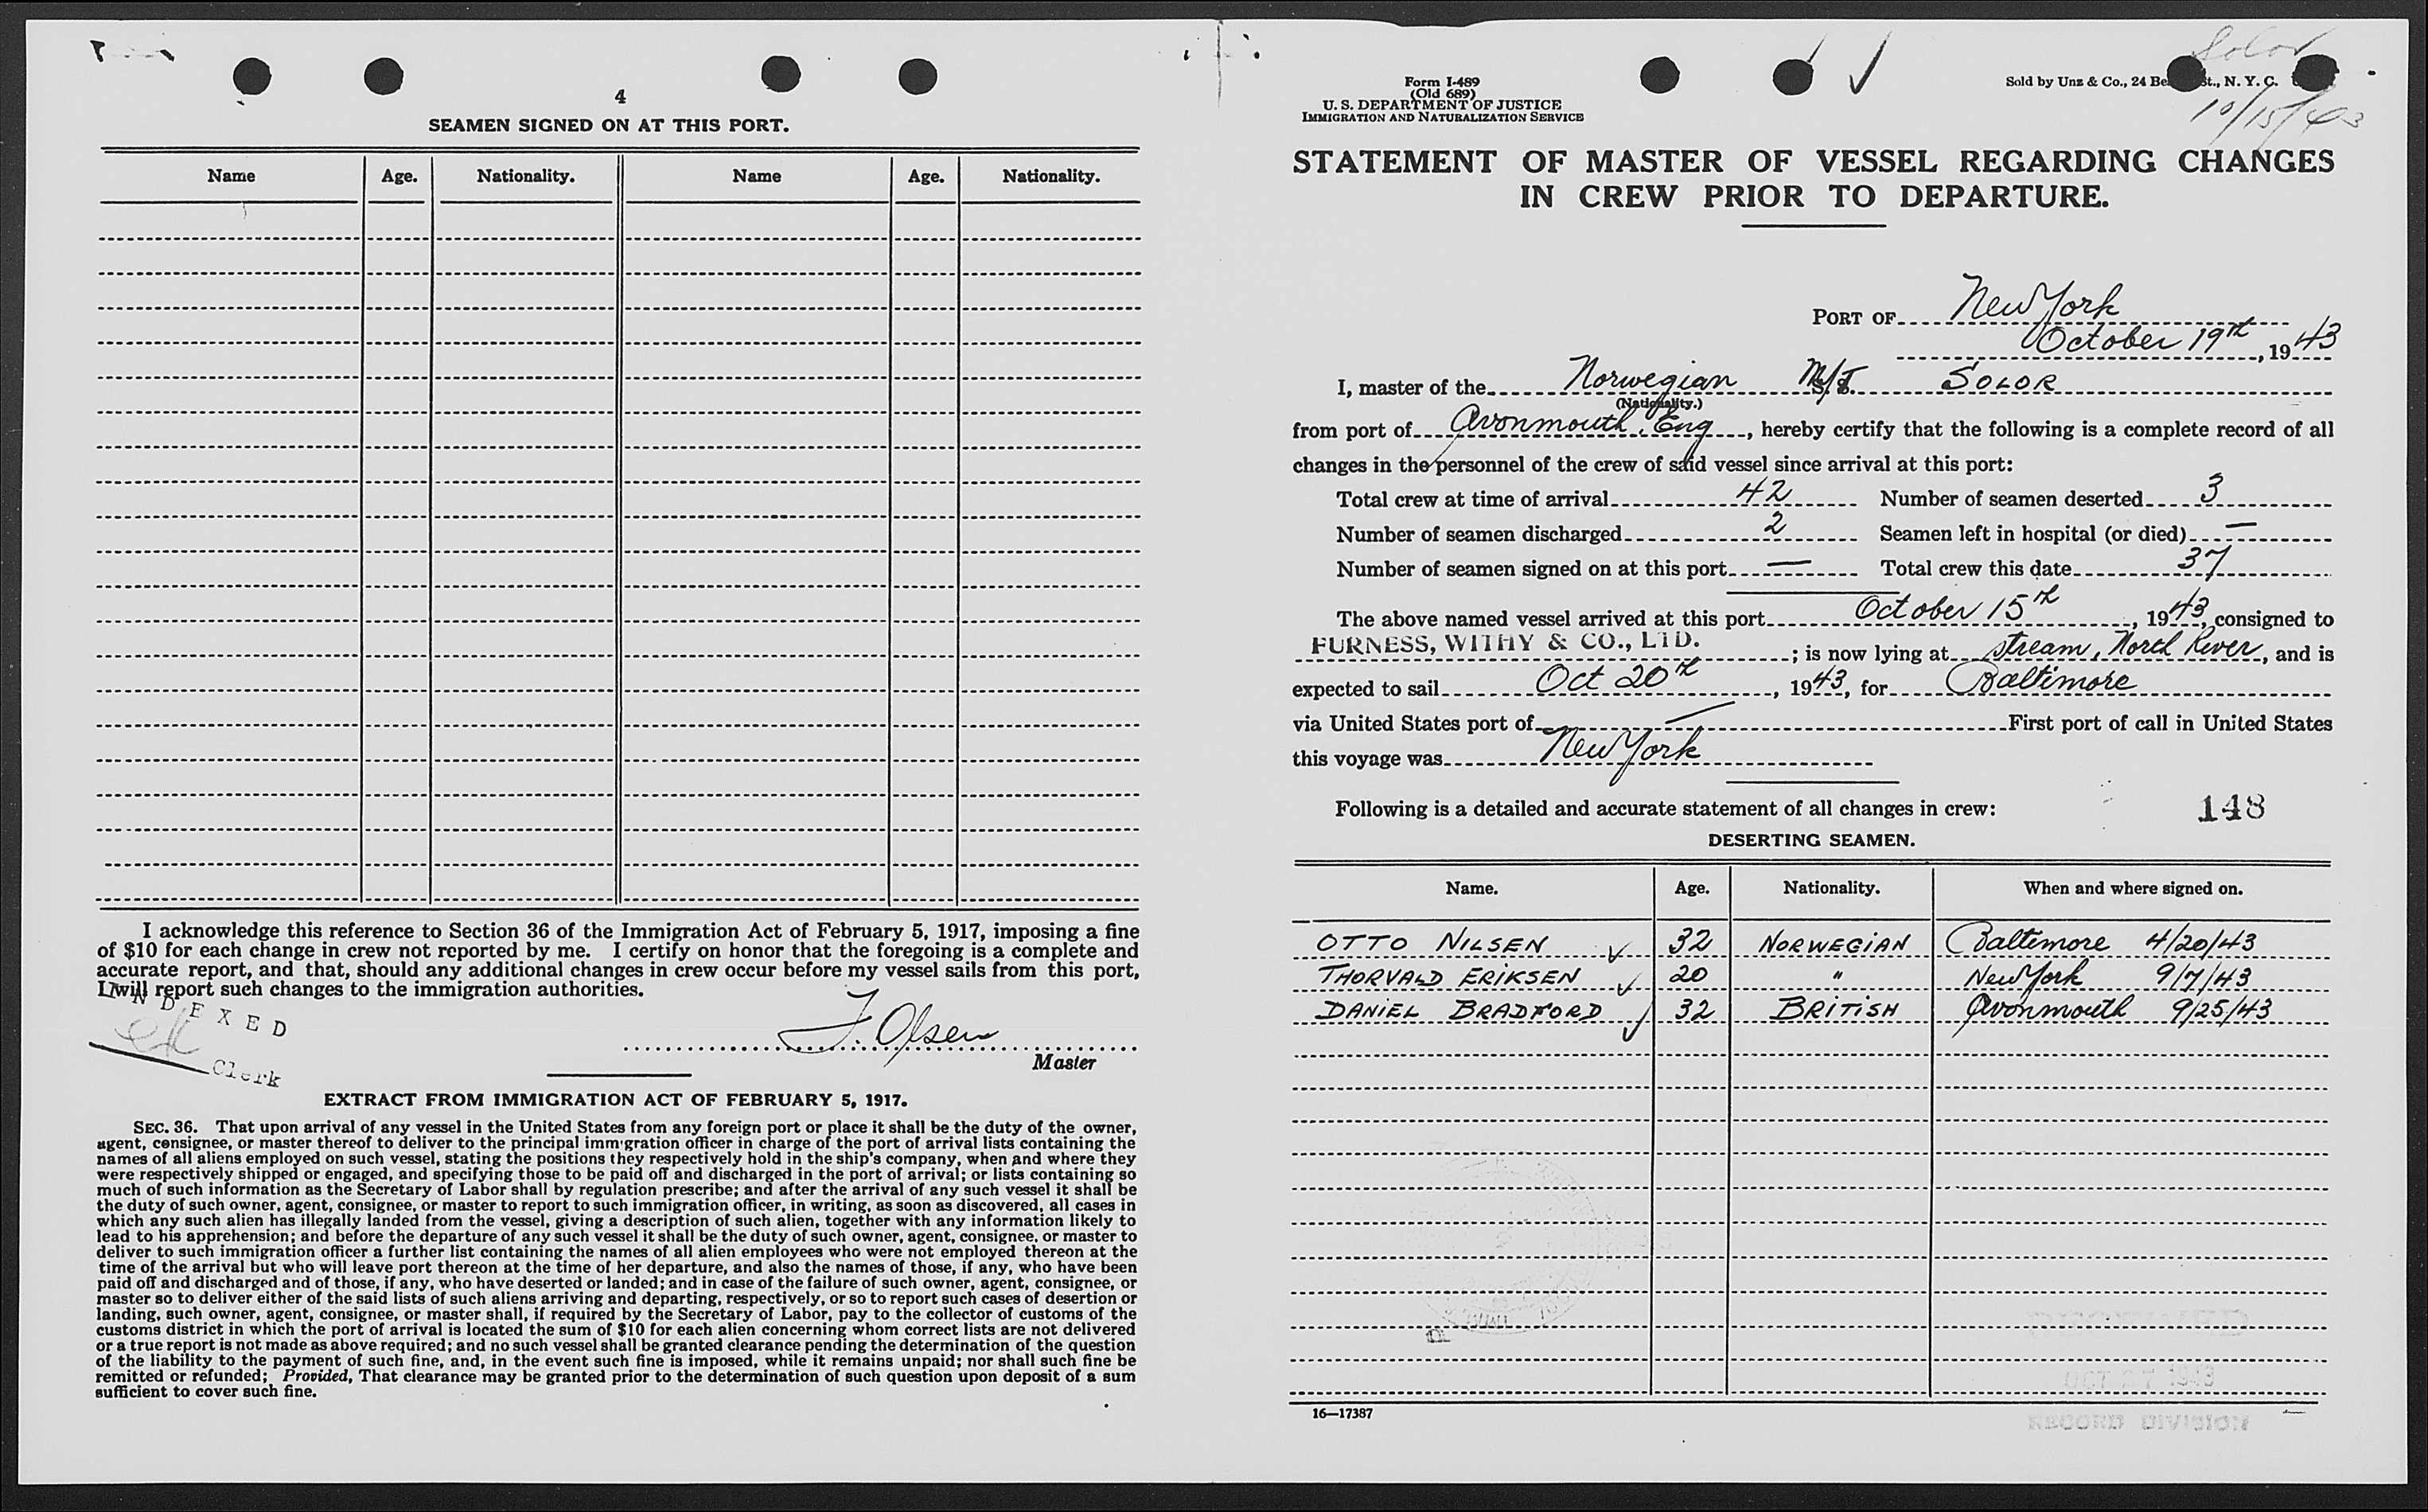 4
SEAMEN SIGNED ON AT THIS PORT.
Name Age. Nationality. Name Age. Nationality.
I acknowledge this reference to Section 36 of the Immigration Act of February 5, 1917, imposing a fine
of $10 for each change in crew not reported by me. I certify on honor that the foregoing is a complete and
accurate report, and that, should any additional changes in crew occur before my vessel sails from this port,
I will report such changes to the immigration authorities.
INDEXED
Clerk
F. Olsen
Master
EXTRACT FROM IMMIGRATION ACT OF FEBRUARY 5, 1917.
SEC. 36. That upon arrival of any vessel in the United States from any foreign port or place it shall be the duty of the owner,
agent, consignee, or master thereof to deliver to the principal immigration officer in charge of the port of arrival lists containing the
names of all aliens employed on such vessel, stating the positions they respectively hold in the ship's company, when and where they
were respectively shipped or engaged, and specifying those to be paid off and discharged in the port of arrival; or lists containing so
much of such information as the Secretary of Labor shall by regulation prescribe; and after the arrival of any such vessel it shall be
the duty of such owner, agent, consignee, or master to report to such immigration officer, in writing, as soon as discovered, all cases in
which any such alien has illegally landed from the vessel, giving a description of such alien, together with any information likely to
lead to his apprehension; and before the departure of any such vessel it shall be the duty of such owner, agent, consignee, or master to
deliver to such immigration officer a further list containing the names of all alien employees who were not employed thereon at the
time of the arrival but who will leave port thereon at the time of her departure, and also the names of those, if any, who have been
paid off and discharged and of those, if any, who have deserted or landed; and in case of the failure of such owner, agent, consignee, or
master so to deliver either of the said lists of such aliens arriving and departing, respectively, or so to report such cases of desertion or
landing, such owner, agent, consignee, or master shall, if required by the Secretary of Labor, pay to the collector of customs of the
customs district in which the port of arrival is located the sum of $10 for each alien concerning whom correct lists are not delivered
or a true report is not made as above required; and no such vessel shall be granted clearance pending the determination of the question
of the liability to the payment of such fine, and, in the event such fine is imposed, while it remains unpaid; nor shall such fine be
remitted or refunded; Provided, That clearance may be granted prior to the determination of such question upon deposit of a sum
sufficient to cover such fine.
Solor
10/15/43
Form I-489
(Old 689)
U. S. DEPARTMENT OF JUSTICE
IMMIGRATION AND NATURALIZATION SERVICE
Sold by Unz & Co., 24 Be St., N. Y. C.
STATEMENT OF MASTER OF VESSEL REGARDING CHANGES
IN CREW PRIOR TO DEPARTURE.
PORT OF New York
October 19th, 1943
I, master of the Norwegian M/T. SOLOR
(Nationality.)
from port of Avonmouth, Eng, hereby certify that the following is a complete record of all
changes in the personnel of the crew of said vessel since arrival at this port:
Total crew at time of arrival 42 Number of seamen deserted 3
Number of seamen discharged 2 Seamen left in hospital (or died) —
Number of seamen signed on at this port — Total crew this date 37
The above named vessel arrived at this port October 15th, 1943, consigned to
FURNESS, WITHY & CO., LTD.; is now lying at stream, North River, and is
expected to sail Oct 20th, 1943, for Baltimore
via United States port of — First port of call in United States
this voyage was New York
Following is a detailed and accurate statement of all changes in crew:
148
DESERTING SEAMEN.
Name. Age. Nationality. When and where signed on.
OTTO NILSEN 32 NORWEGIAN Baltimore 4/20/43
THORVALD ERIKSEN 20 " New York 9/7/43
DANIEL BRADFORD 32 BRITISH Avonmouth 9/25/43
16—17387